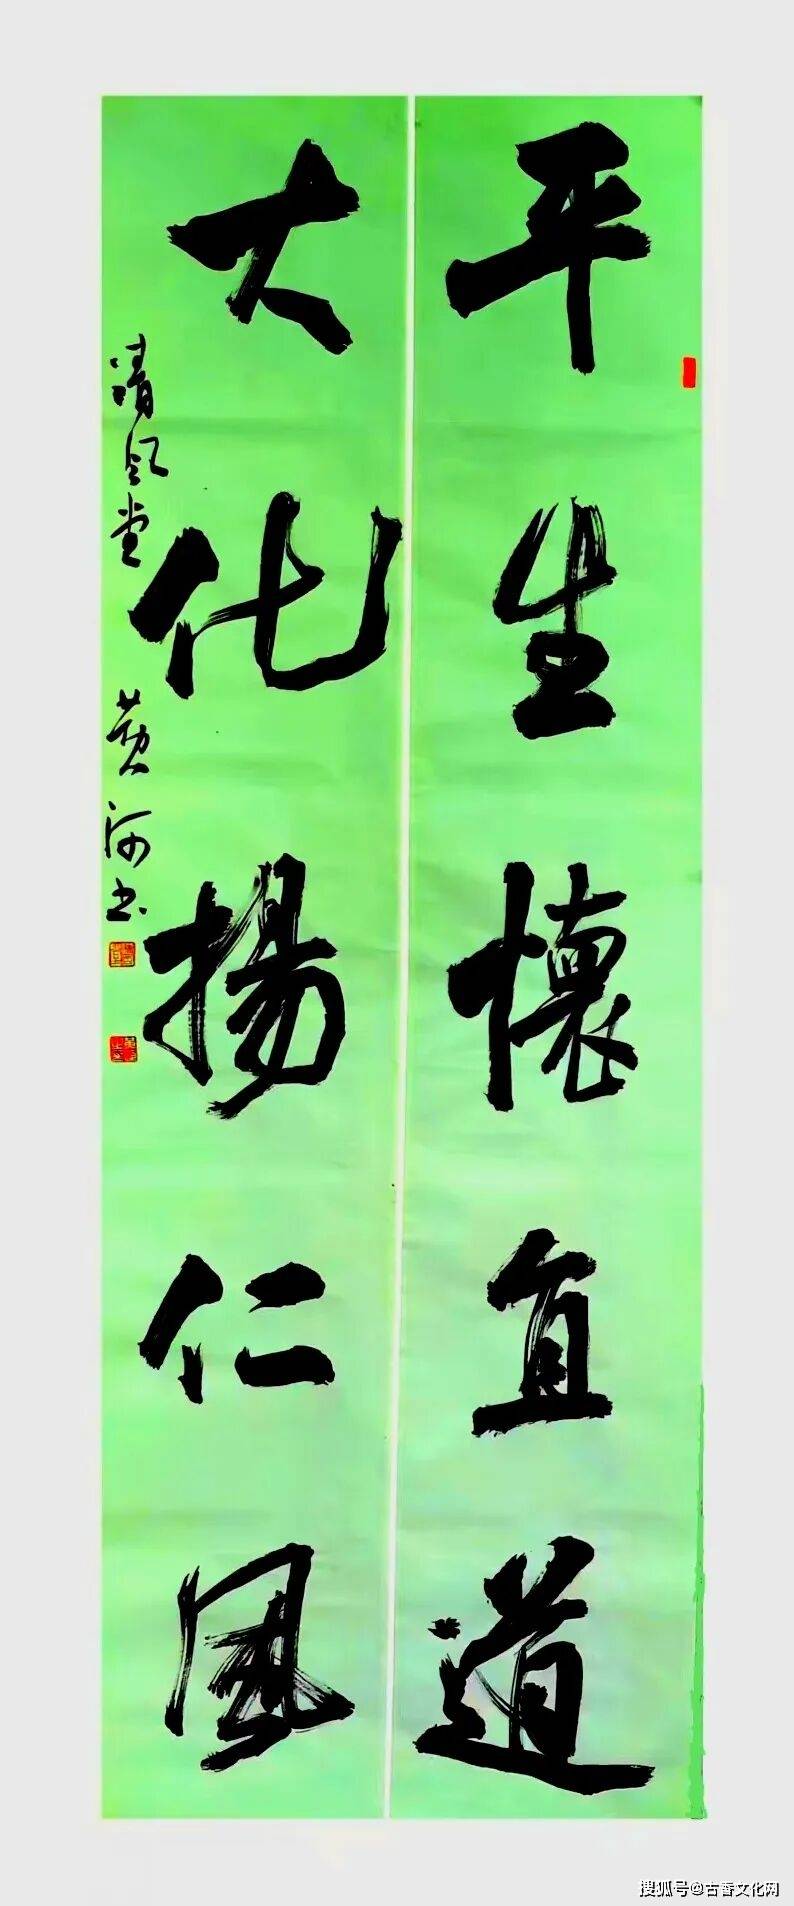 平生懷直道
大化揚仁風
清風堂 黄河書
搜狐号@古香文化网